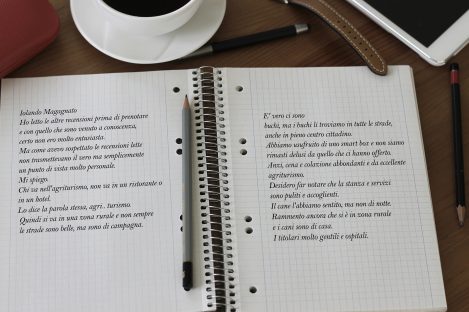 Iolando Magagnato
Ho letto le altre recensioni prima di prenotare
e con quello che sono venuto a conoscenza,
certo non ero molto entusiasta.
Ma come avevo sospettato le recensioni lette
non trasmettevano il vero ma semplicemente
un punto di vista molto personale.
Mi spiego.
Chi va nell'agriturismo, non va in un ristorante o
in un hotel.
Lo dice la parola stessa, agri.. turismo.
Quindi si va in una zona rurale e non sempre
le strade sono belle, ma sono di campagna.
E' vero ci sono
buchi, ma i buchi li troviamo in tutte le strade,
anche in pieno centro cittadino.
Abbiamo usufruito di uno smart box e non siamo
rimasti delusi da quello che ci hanno offerto.
Anzi, cena e colazione abbondanti e da eccellente
agriturismo.
Desidero far notare che la stanza e servizi
sono puliti e accoglienti.
Il cane l'abbiamo sentito, ma non di notte.
Rammento ancora che si è in zona rurale
e i cani sono di casa.
I titolari molto gentili e ospitali.